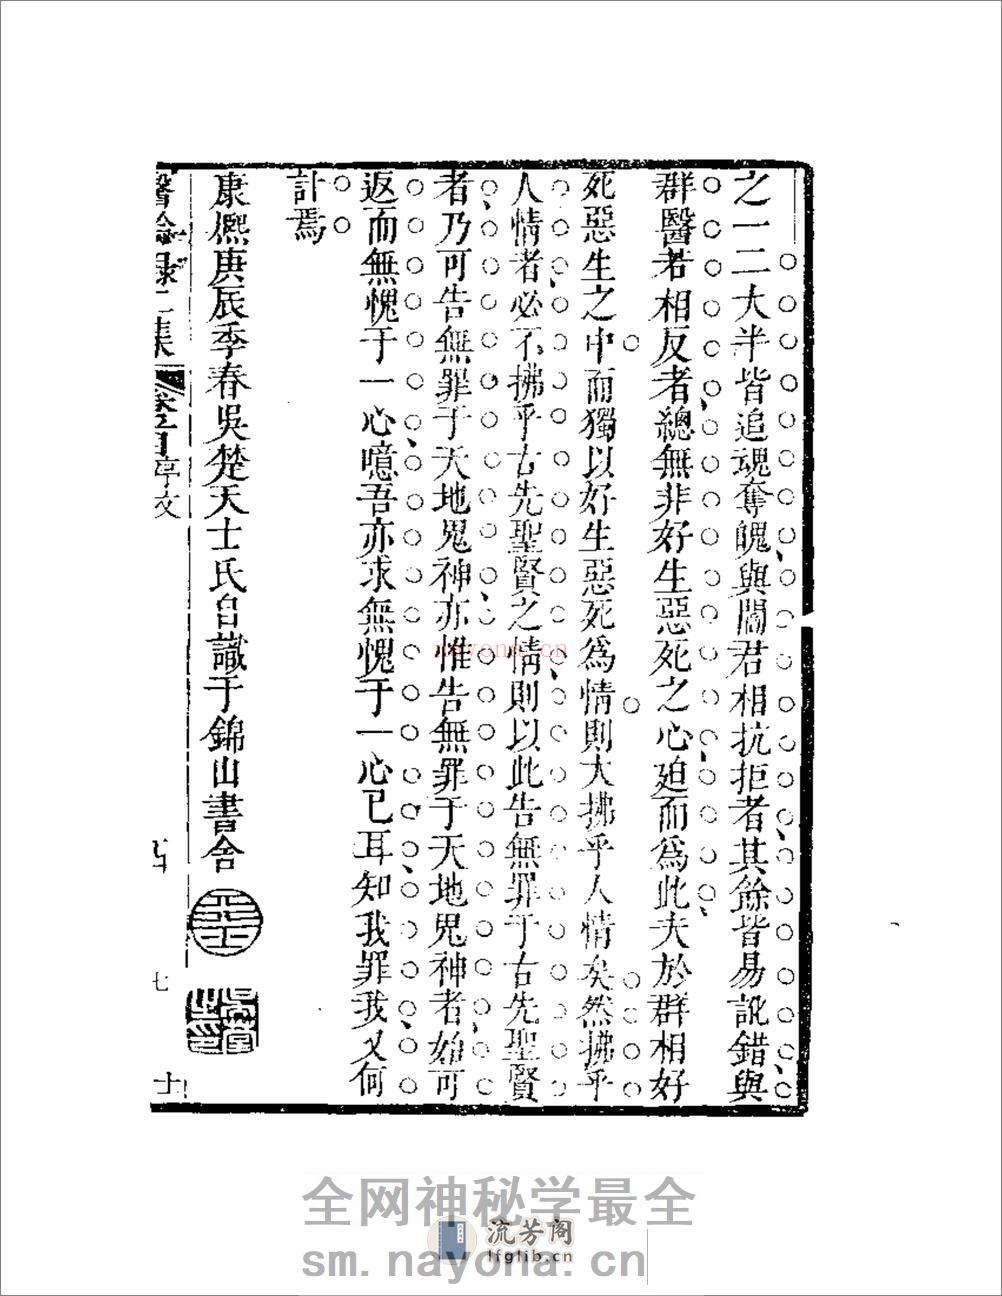 之一二大半皆追魂奪魄與閻君相抗拒者其餘皆易訛錯與
群醫若相反者總無非好生惡死之心廹而爲此夫於群相好
死惡生之中而獨以好生惡死爲情則大拂乎人情矣然拂乎
人情者必不拂乎古先聖賢之情則以此告無罪于古先聖賢
者乃可告無罪于天地鬼神亦惟告無罪于天地鬼神者始可
返而無愧于一心噫吾亦求無愧于一心已耳知我罪我又何
計焉
康熈庚辰季春吳楚天士氏自識于錦山書舍
天士
二集
序文
七
nayona.cn
全网神秘学最全
流芳阁
lfglib.cn
sm.nayona.cn